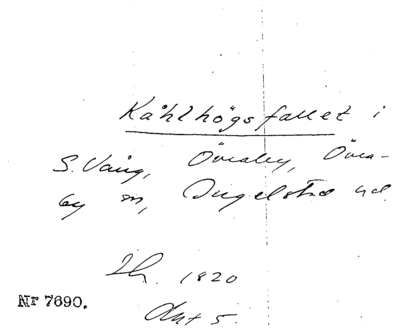 Kåhlhögsfallet i
S. Vång, Öraby, Öra-
by sn, Ingelstad hd.
Lh. 1820
Akt 5.
Nr 7690.